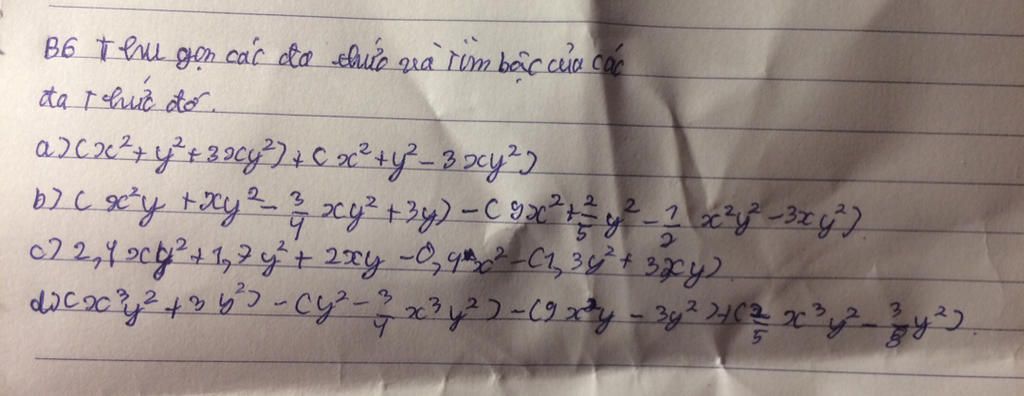 B6 Thu gọn các đa thức và tìm bậc của các
đa thức đó.
a) (x² + y² + 3xy²) + (x² + y² - 3xy²)
b) (x²y + xy² - 3/4 xy² + 3y) - (9x² + 2/5 y² - 1/2 x²y² - 3xy²)
c) 2,4xy² + 1,7y² + 2xy - 0,4x² - (1,3y² + 3xy)
d) (x³y² + 3y²) - (y² - 3/4 x³y²) - (9x²y - 3y²) + (2/5 x³y² - 3/8 y²).